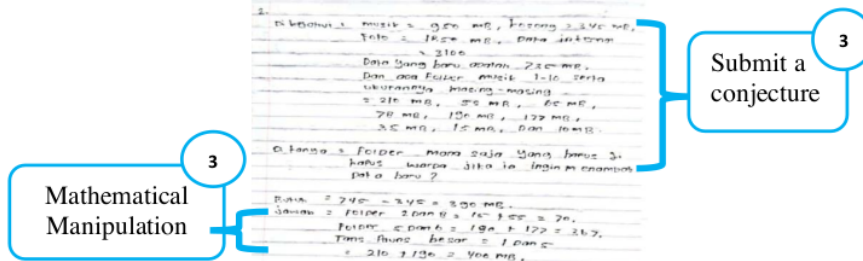 2.
Diketahui : musik = 950 MB, kosong = 345 MB,
Foto = 1850 MB, Data internal
= 3100
Data yang baru adalah 735 MB.
Dan ada Folder musik 1-10 serta
ukurannya masing-masing
= 210 MB, 55 MB, 65 MB,
78 MB, 190 MB, 177 MB,
35 MB, 15 MB, Dan 10 MB.
Ditanya = Folder mana saja yang harus di
hapus jika ia ingin menambah
Data baru ?
= 745 - 345 = 390 MB.
Jawab = Folder 2 Dan 8 = 15 + 55 = 70.
Folder 5 Dan 6 = 190 + 177 = 367.
besar = 1 Dan 5
= 210 + 190 = 400 MB.
3
Submit a
conjecture
3
Mathematical
Manipulation